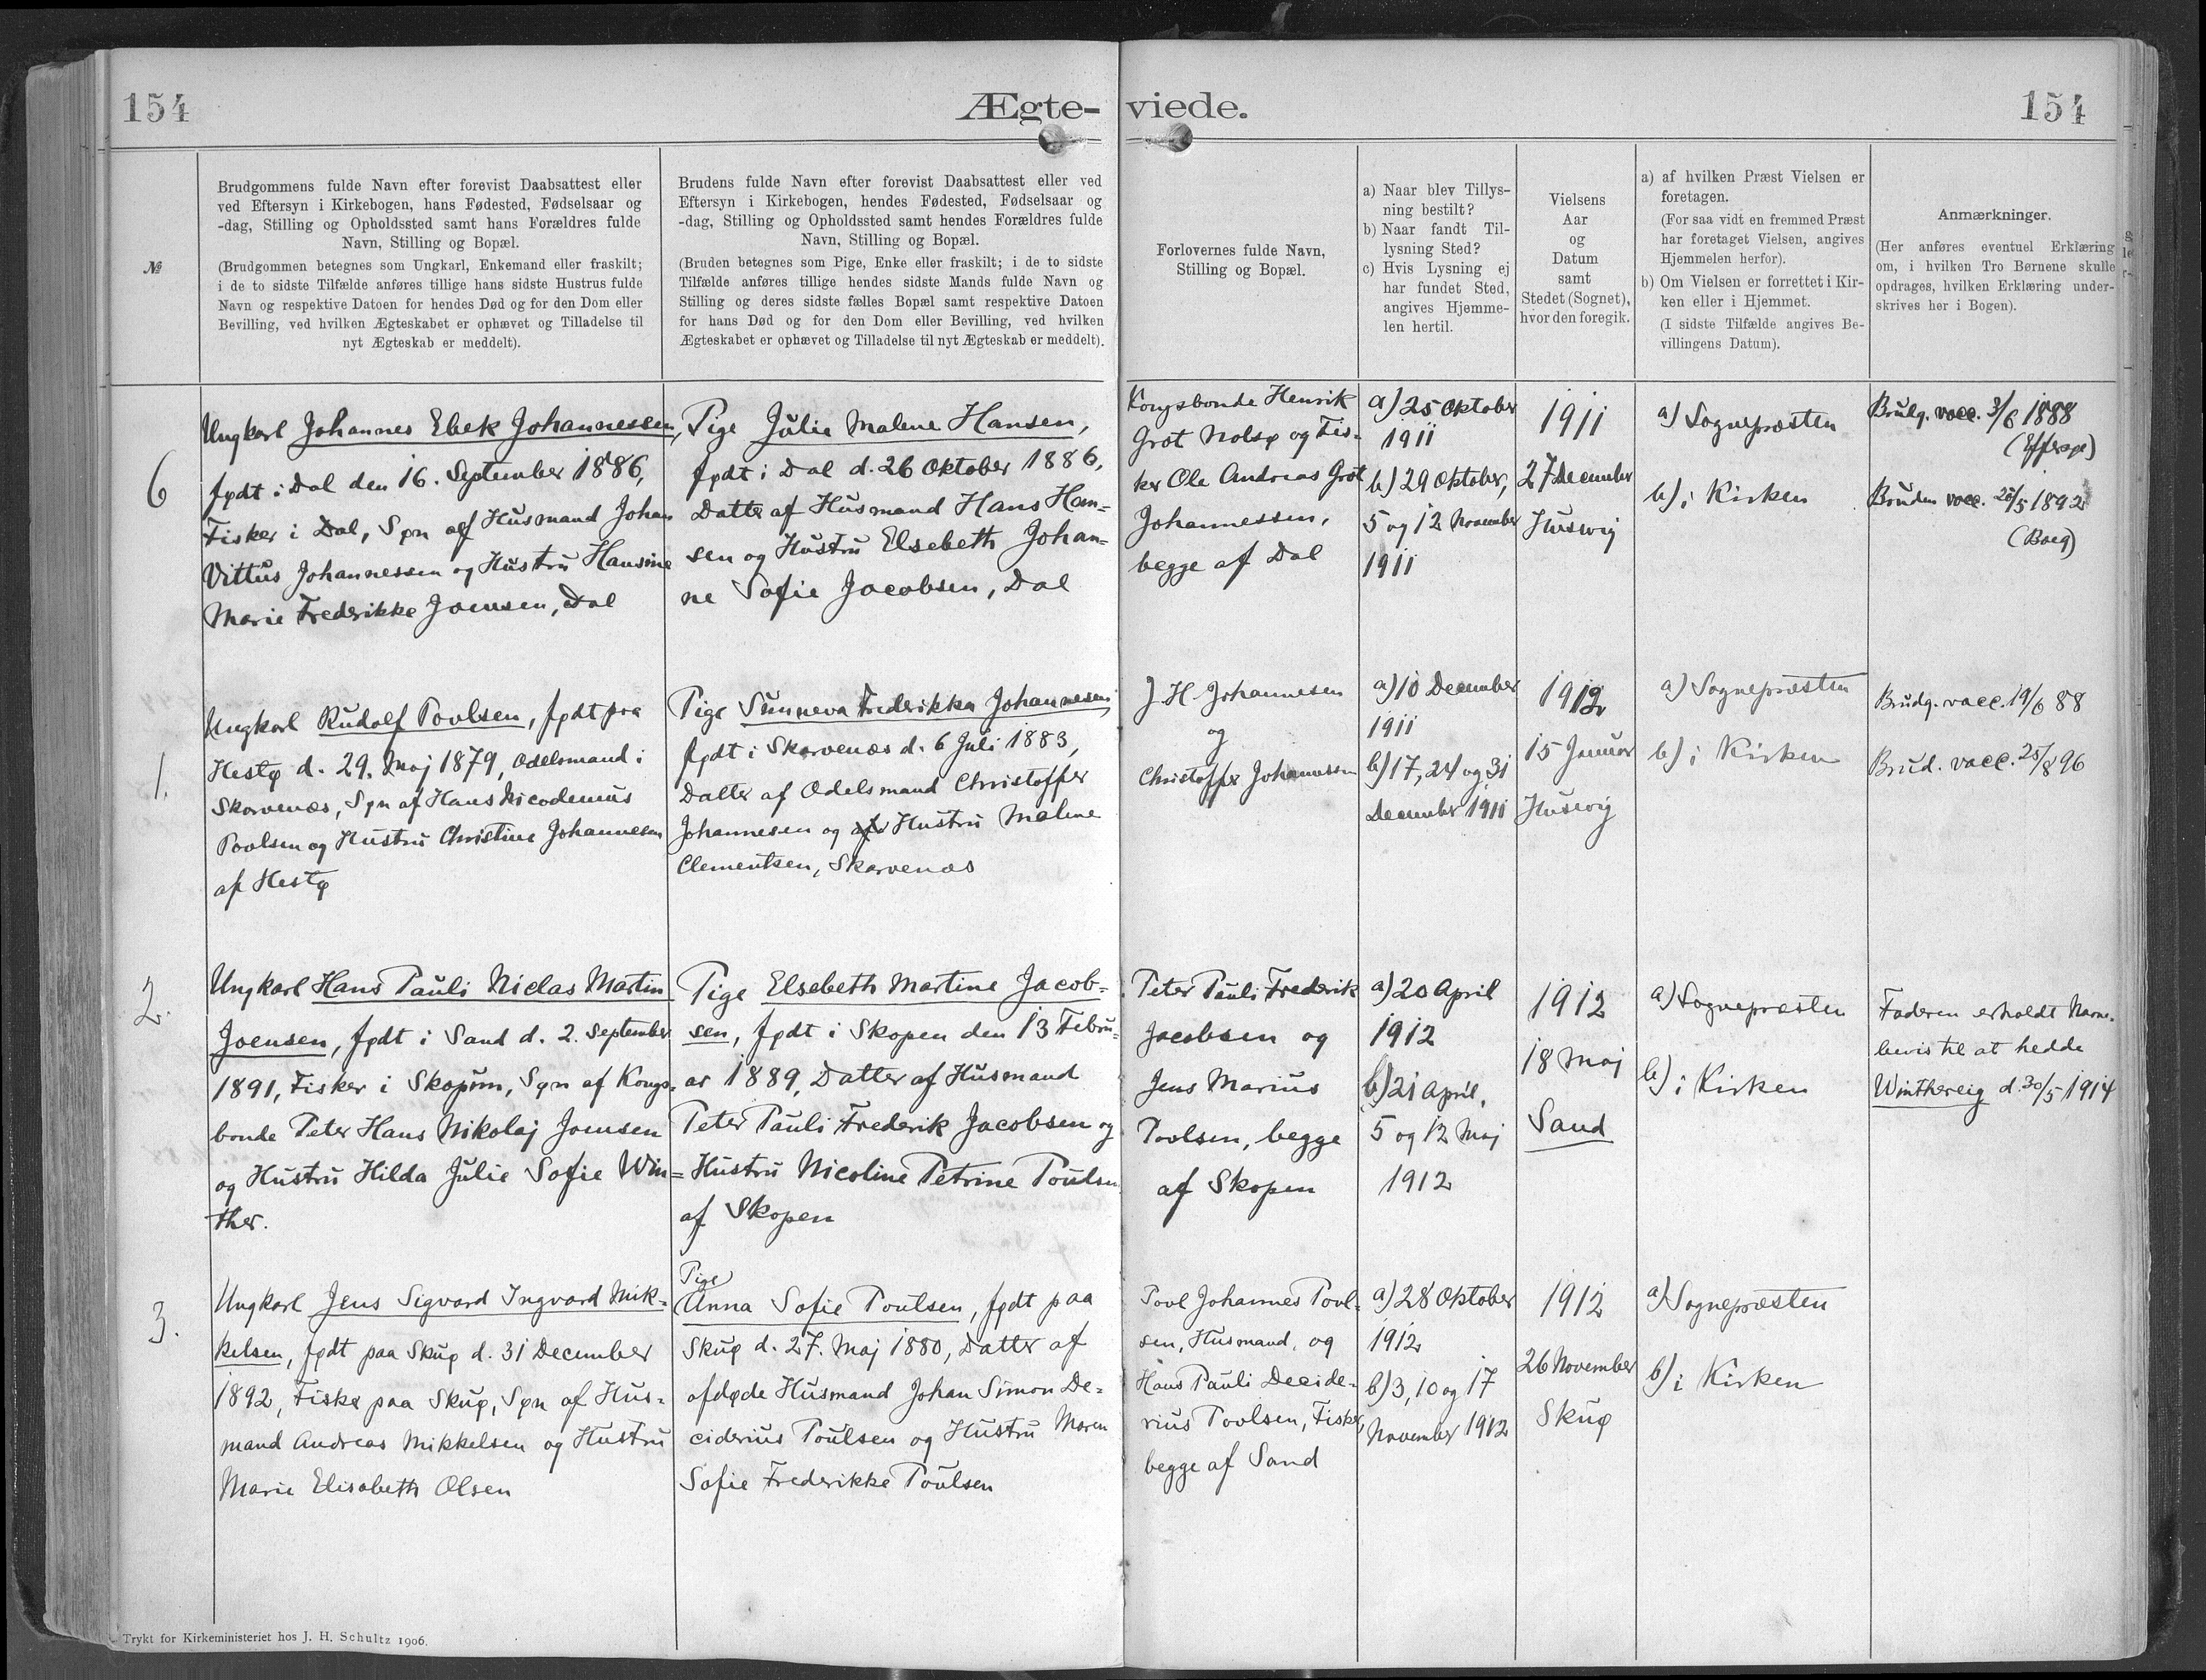 154
Ægte-
viede.
154
№
Brudgommens fulde Navn efter forevist Daabsattest eller
ved Eftersyn i Kirkebogen, hans Fødested, Fødselsaar og
-dag, Stilling og Opholdssted samt hans Forældres fulde
Navn, Stilling og Bopæl.
(Brudgommen betegnes som Ungkarl, Enkemand eller fraskilt;
i de to sidste Tilfælde anføres tillige hans sidste Hustrus fulde
Navn og respektive Datoen for hendes Død og for den Dom eller
Bevilling, ved hvilken Ægteskabet er ophævet og Tilladelse til
nyt Ægteskab er meddelt).
Brudens fulde Navn efter forevist Daabsattest eller ved
Eftersyn i Kirkebogen, hendes Fødested, Fødselsaar og
-dag, Stilling og Opholdssted samt hendes Forældres fulde
Navn, Stilling og Bopæl.
(Bruden betegnes som Pige, Enke eller fraskilt; i de to sidste
Tilfælde anføres tillige hendes sidste Mands fulde Navn og
Stilling og deres sidste fælles Bopæl samt respektive Datoen
for hans Død og for den Dom eller Bevilling, ved hvilken
Ægteskabet er ophævet og Tilladelse til nyt Ægteskab er meddelt).
Forlovernes fulde Navn,
Stilling og Bopæl.
a) Naar blev Tillys-
ning bestilt?
b) Naar fandt Til-
lysning Sted?
c) Hvis Lysning ej
har fundet Sted,
angives Hjemme-
len hertil.
Vielsens
Aar
og
Datum
samt
Stedet (Sognet),
hvor den foregik.
a) af hvilken Præst Vielsen er
foretagen.
(For saa vidt en fremmed Præst
har foretaget Vielsen, angives
Hjemmelen herfor).
b) Om Vielsen er forrettet i Kir-
ken eller i Hjemmet.
(I sidste Tilfælde angives Be-
villingens Datum).
Anmærkninger.
(Her anføres eventuel Erklæring
om, i hvilken Tro Børnene skulle
opdrages, hvilken Erklæring under-
skrives her i Bogen).
6
Ungkarl Johannes Ebek Johannessen,
født i Dal den 16. September 1886,
Fisker i Dal, Søn af Husmand Johan
Vittus Johannessen og Hustru Hansine
Marie Frederikke Joensen, Dal
Pige Julie Malene Hansen,
født i Dal d. 26 Oktober 1886,
Datter af Husmand Hans Han-
sen og Hustru Elsebeth Johan-
ne Sofie Jacobsen, Dal
Kongsbonde Henrik
Grot Nolsø og Fis-
ker Ole Andreas Grot
Johannessen,
begge af Dal
a) 25 Oktober
1911
b) 29 Oktober,
5 og 12 November
1911
1911
27 December
Husevig
a) Sognepræsten
b) i Kirken
Brudg. vacc. 3/6 1888
Bruden vacc. 25/5 1892
(Boeg)
1.
Ungkarl Rudolf Poulsen, født paa
Hestø d. 29. Maj 1879, Odelsmand i
Skarvenæs, Søn af Hans Nicodemus
Poulsen og Hustru Christine Johannesen
af Hestø
Pige Sunneva Frederikka Johannesen,
født i Skarvenæs d. 6 Juli 1883,
Datter af Odelsmand Christoffer
Johannesen og af Hustru Malene
Clementsen, Skarvenæs
J. H. Johannesen
og
Christoffer Johannesen
a) 10 December
1911
b) 17, 24 og 31
December 1911
1912
15 Januar
Husevig
a) Sognepræsten
b) i Kirken
Brudg. vacc. 19/6 88
Brud. vacc. 25/8 96
2.
Ungkarl Hans Pauli Niclas Martin
Joensen, født i Sand d. 2. September
1891, Fisker i Skopun, Søn af Kongs-
bonde Peter Hans Nikolaj Joensen
og Hustru Hilda Julie Sofie Win-
ther.
Pige Elsebeth Martine Jacob-
sen, født i Skopen den 13 Febru-
ar 1889, Datter af Husmand
Peter Pauli Frederik Jacobsen og
Hustru Nicoline Petrine Poulsen
af Skopen
Peter Pauli Frederik
Jacobsen og
Jens Marius
Poulsen, begge
af Skopen
a) 20 April
1912
b) 21 April,
5 og 12 Maj
1912
1912
18 Maj
Sand
a) Sognepræsten
b) i Kirken
Faderen erholdt Navne-
bevis til at hedde
Winthereig d. 30/5 1914
3.
Ungkarl Jens Sigvard Ingvard Mik-
kelsen, født paa Skuø d. 31 December
1892, Fisker paa Skuø, Søn af Hus-
mand Andreas Mikkelsen og Hustru
Marie Elisabeth Olsen
Pige
Anna Sofie Poulsen, født paa
Skuø d. 27. Maj 1880, Datter af
afdøde Husmand Johan Simon De-
ciderius Poulsen og Hustru Maren
Sofie Frederikke Poulsen
Poul Johannes Poul-
sen, Husmand, og
Hans Pauli Decide-
rius Poulsen, Fisker,
begge af Sand
a) 28 Oktober
1912
b) 3, 10 og 17
November 1912
1912
26 November
Skuø
a) Sognepræsten
b) i Kirken
Trykt for Kirkeministeriet hos J. H. Schultz 1906.